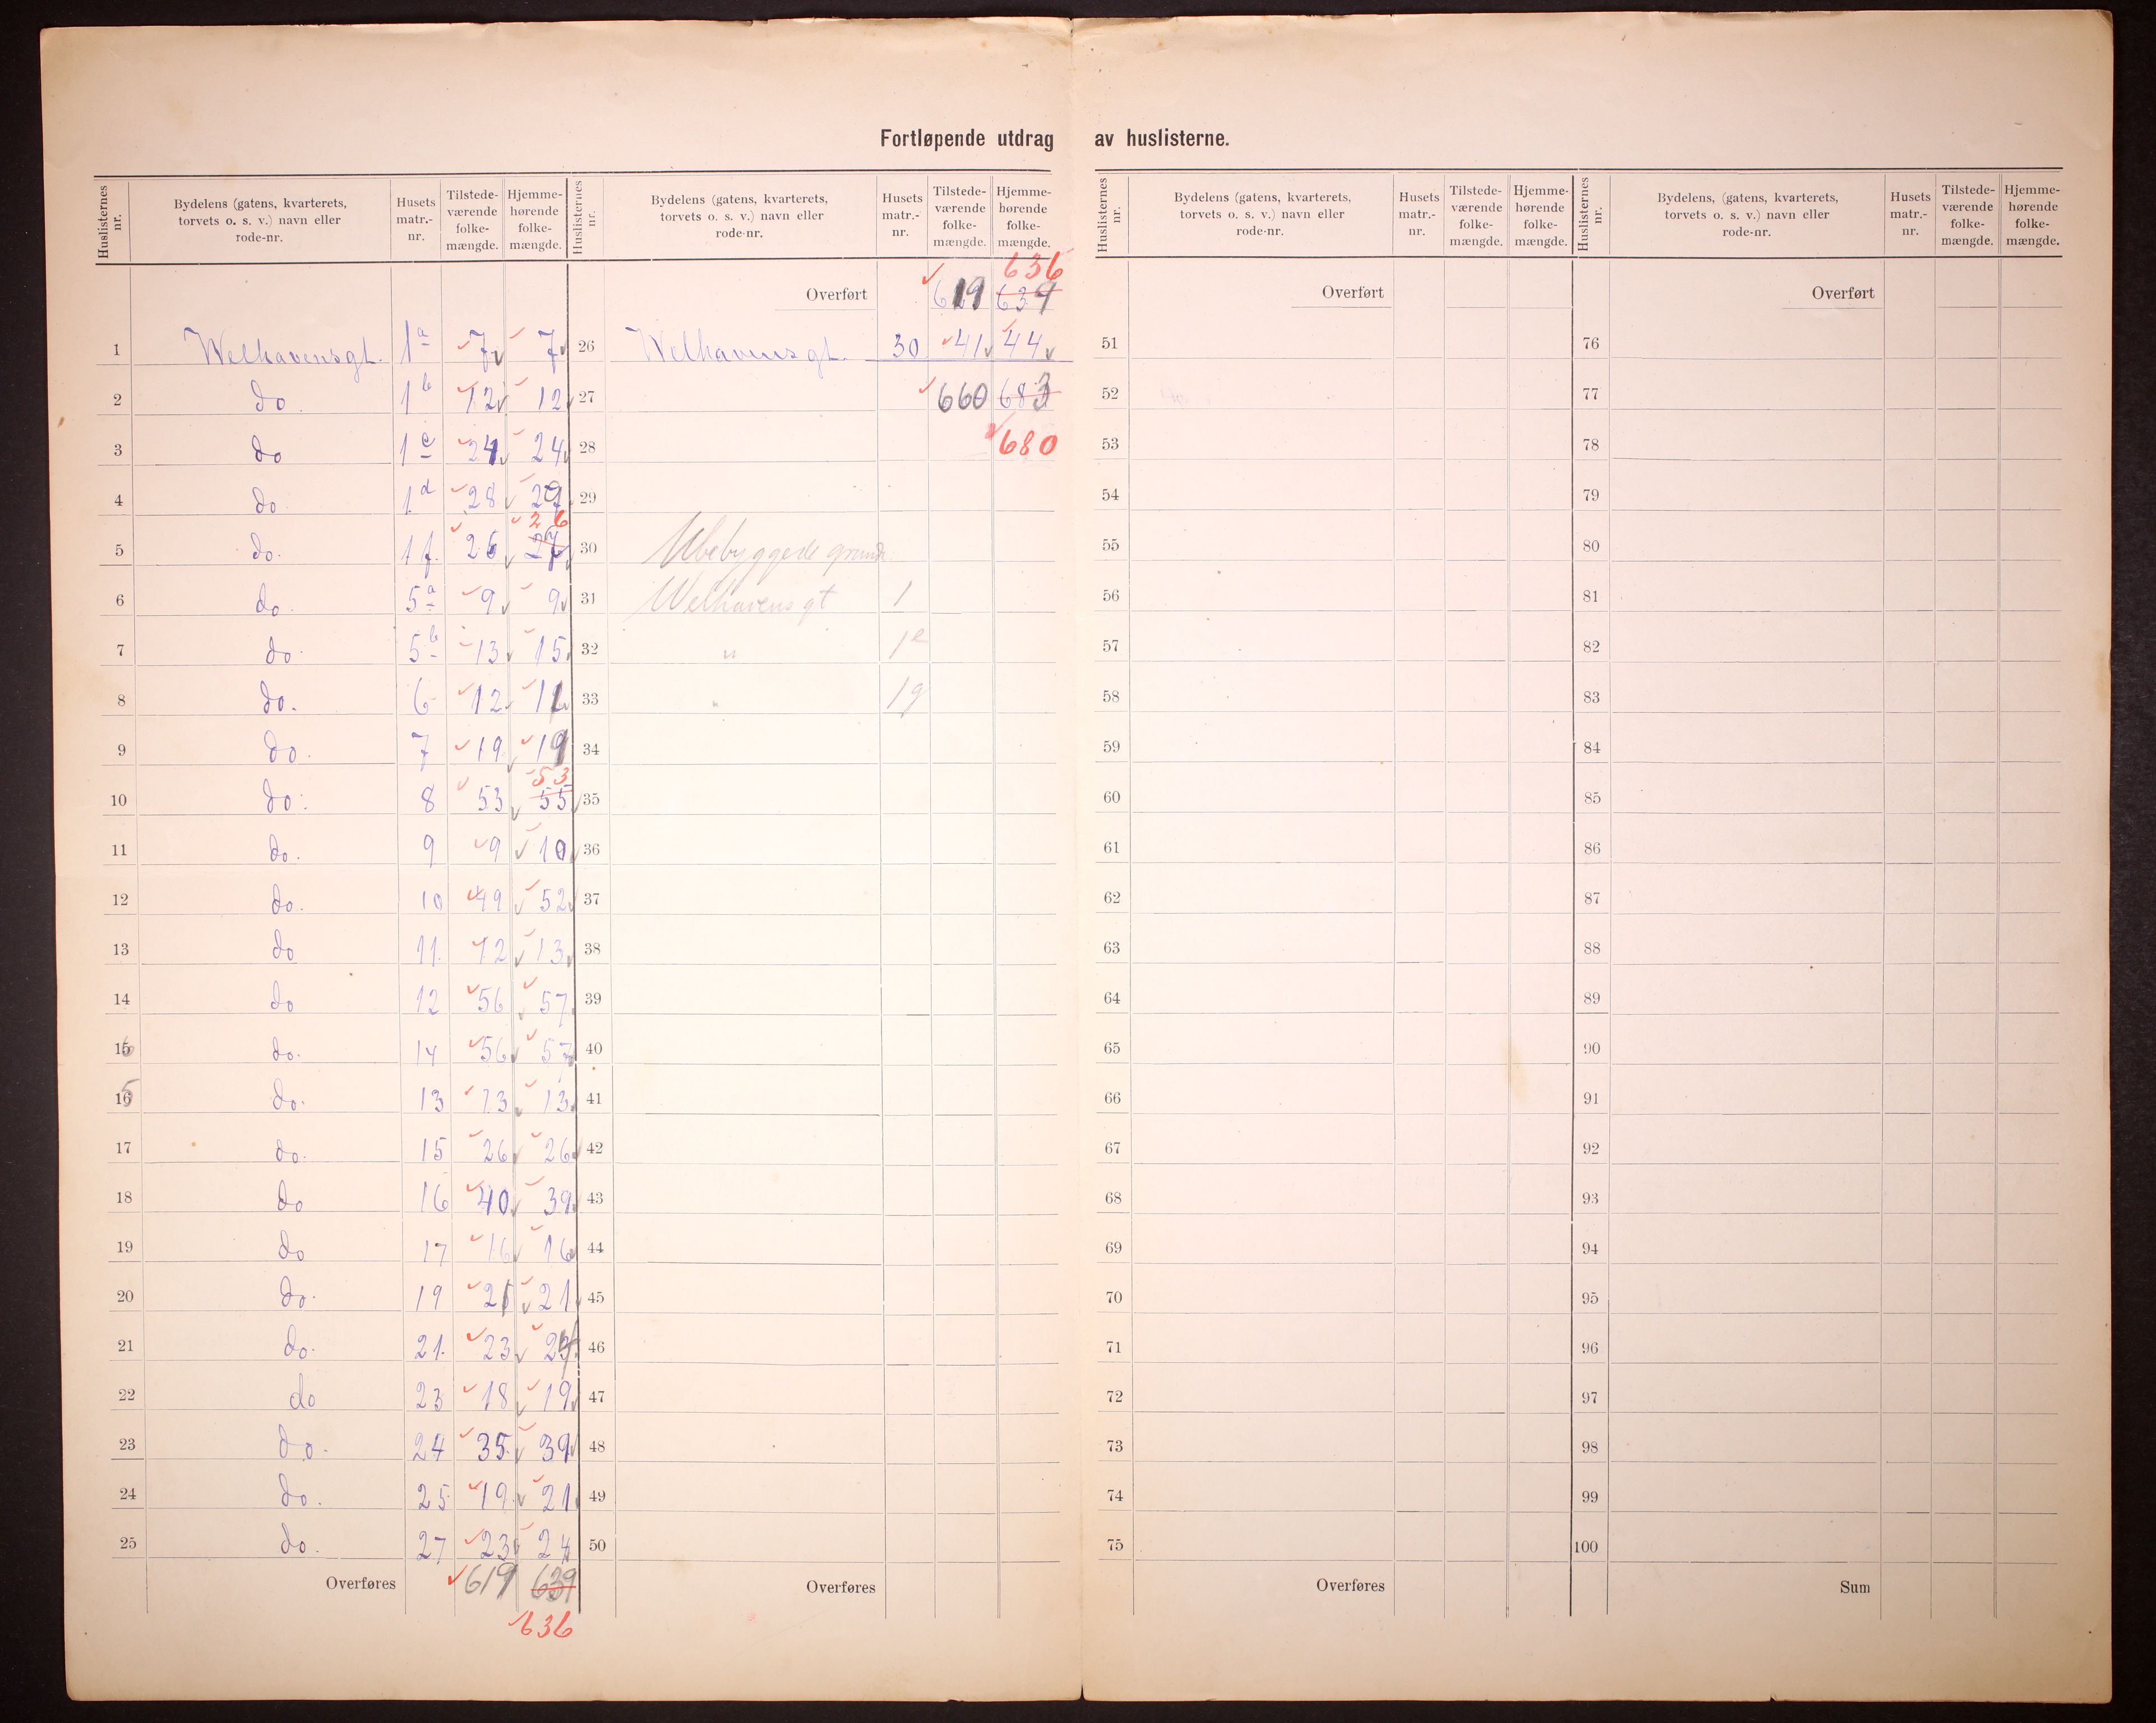 Fortløpende utdrag av huslisterne.
Huslisternes nr. Bydelens (gatens, kvarterets, torvets o. s. v.) navn eller rode-nr. Husets matr.-nr. Tilstede-værende folke-mængde. Hjemme-hørende folke-mængde.
1 Welhavensgt. 1a 7 7
2 do. 1b 12 12
3 do 1c 24 24
4 do 1d 28 29
26
5 do. 1f. 26 27
6 do. 5a 9 9
7 do. 5b 13 15
8 do. 6 12 11
9 do. 7 19 19
53
10 do. 8 53 55
11 do. 9 9 10
12 do. 10 49 52
13 do 11. 12 13
14 do 12 56 57
15 6 do. 14 56 57
16 5 do. 13 13 13
17 do. 15 26 26
18 do 16 40 39
19 do 17 16 16
20 do. 19 21 21
21 do. 21. 23 24
22 do 23 18 19
23 do. 24 35 39
24 do. 25 19 21
25 do. 27 23 24
Overføres 619 639
636
Huslisternes nr. Bydelens (gatens, kvarterets, torvets o. s. v.) navn eller rode-nr. Husets matr.-nr. Tilstede-værende folke-mængde. Hjemme-hørende folke-mængde.
636
Overført 619 639
26 Welhavensgt. 30 41 44
27 660 683
28 680
29
30 Ubebyggede grunde
31 Welhavens gt 1
32 " 1e
33 " 1g
34
35
36
37
38
39
40
41
42
43
44
45
46
47
48
49
50
Overføres
Huslisternes nr. Bydelens (gatens, kvarterets, torvets o. s. v.) navn eller rode-nr. Husets matr.-nr. Tilstede-værende folke-mængde. Hjemme-hørende folke-mængde.
Overført
51
52
53
54
55
56
57
58
59
60
61
62
63
64
65
66
67
68
69
70
71
72
73
74
75
Overføres
Huslisternes nr. Bydelens, (gatens, kvarterets, torvets o. s. v.) navn eller rode-nr. Husets matr.-nr. Tilstede-værende folke-mængde. Hjemme-hørende folke-mængde.
Overført
76
77
78
79
80
81
82
83
84
85
86
87
88
89
90
91
92
93
94
95
96
97
98
99
100
Sum